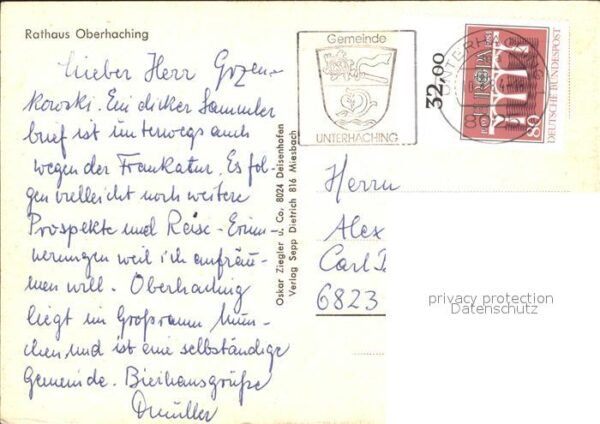 Rathaus Oberhaching
Lieber Herr Gozen-
kowski. Ein dicker Sammler
brief ist unterwegs auch
wegen der Frankatur. Es fol-
gen vielleicht noch weitere
Prospekte und Reise-Erinne
nerungen weil ich aufräu-
men will. Oberhaching
liegt im Großraum Mün-
chen und ist eine selbständige
Gemeinde. Bierhausgrüße
Dmüller
Oskar Ziegler u. Co, 8024 Deisenhofen
Verlag Sepp Dietrich 816 Miesbach
Gemeinde
UNTERHACHING
32,00
UNTERHACHING
EUROPA
80
DEUTSCHE BUNDESPOST
Herrn
Alex
Carl
6823
privacy protection
Datenschutz